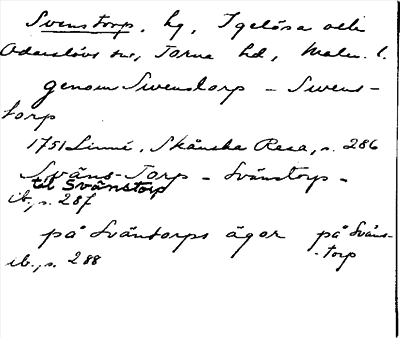 Svenstorp, hg, Igelösa och
Odarslövs snr, Torna hd, Malm. l.
genom Swenstorp - Swens-
torp
1751 Linné, Skånska Resa, s. 286
Swäns-Torp - Svänstorp -
til Svänstorp
ib., s. 287
på Sväntorps ägor på Sväns-
-torp
ib., s. 288